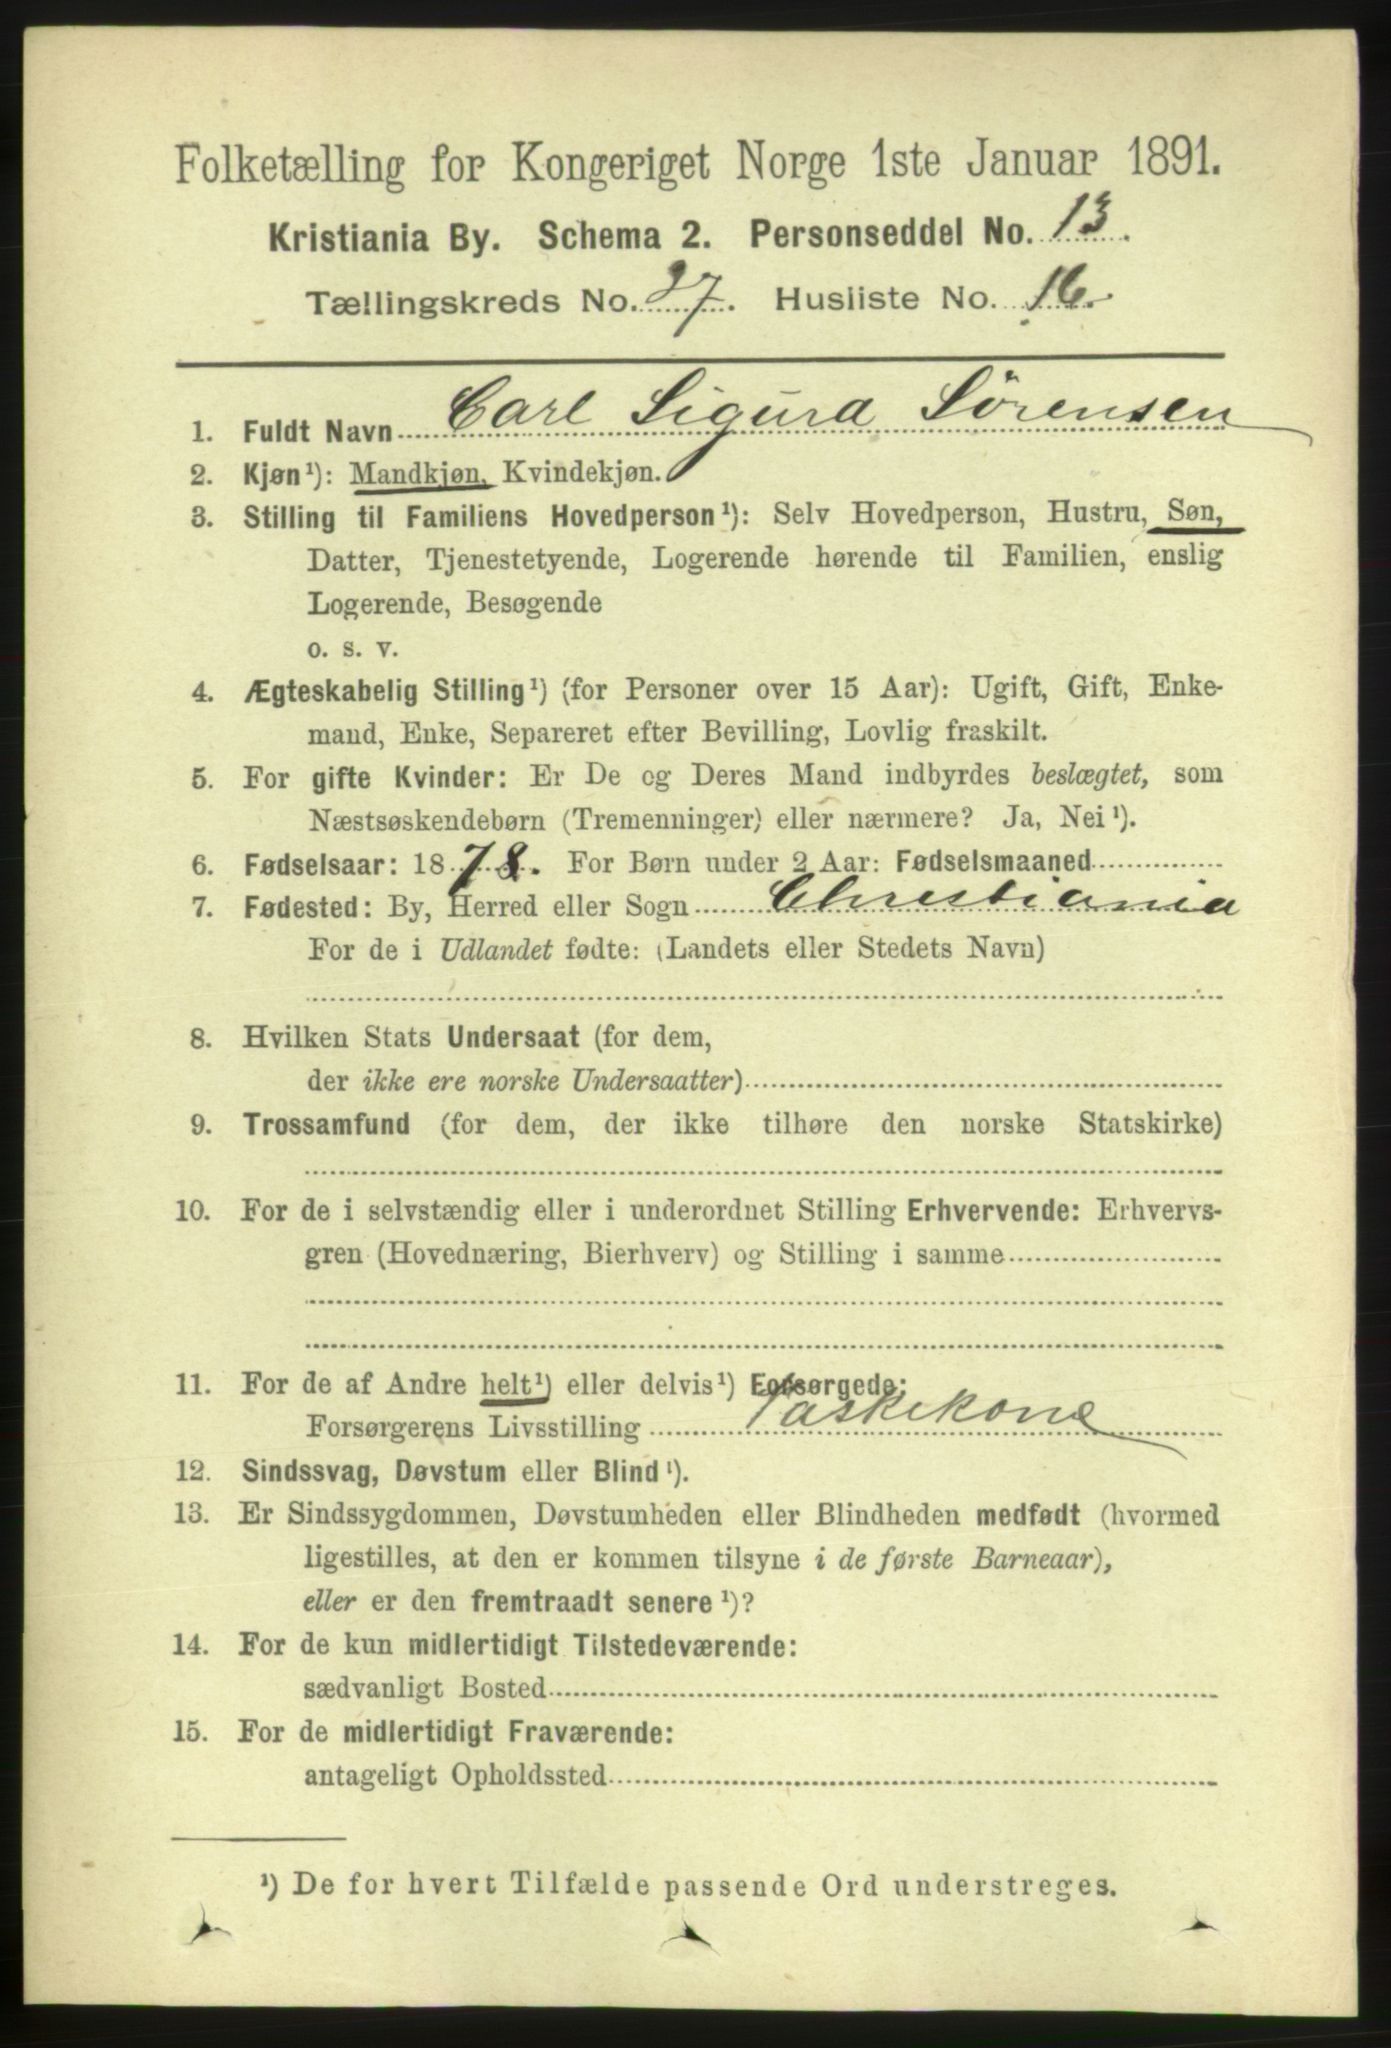 Folketælling for Kongeriget Norge 1ste Januar 1891.
Kristiania By. Schema 2. Personseddel No. 13.
Tællingskreds No. 27. Husliste No. 16.
1. Fuldt Navn Carl Sigurd Sörensen
2. Kjøn¹): Mandkjøn, Kvindekjøn.
3. Stilling til Familiens Hovedperson¹): Selv Hovedperson, Hustru, Søn,
Datter, Tjenestetyende, Logerende hørende til Familien, enslig
Logerende, Besøgende
o. s. v.
4. Ægteskabelig Stilling¹) (for Personer over 15 Aar): Ugift, Gift, Enke-
mand, Enke, Separeret efter Bevilling, Lovlig fraskilt.
5. For gifte Kvinder: Er De og Deres Mand indbyrdes beslægtet, som
Næstsøskendebørn (Tremenninger) eller nærmere? Ja, Nei¹).
6. Fødselsaar: 1878. For Børn under 2 Aar: Fødselsmaaned
7. Fødested: By, Herred eller Sogn Christiania
For de i Udlandet fødte: (Landets eller Stedets Navn)
8. Hvilken Stats Undersaat (for dem,
der ikke ere norske Undersaatter)
9. Trossamfund (for dem, der ikke tilhøre den norske Statskirke)
10. For de i selvstændig eller i underordnet Stilling Erhvervende: Erhvervs-
gren (Hovednæring, Bierhverv) og Stilling i samme
11. For de af Andre helt¹) eller delvis¹) Forsørgede:
Forsørgerens Livsstilling Vaskekone
12. Sindssvag, Døvstum eller Blind¹).
13. Er Sindssygdommen, Døvstumheden eller Blindheden medfødt (hvormed
ligestilles, at den er kommen tilsyne i de første Barneaar),
eller er den fremtraadt senere¹)?
14. For de kun midlertidigt Tilstedeværende:
sædvanligt Bosted
15. For de midlertidigt Fraværende:
antageligt Opholdssted
¹) De for hvert Tilfælde passende Ord understreges.